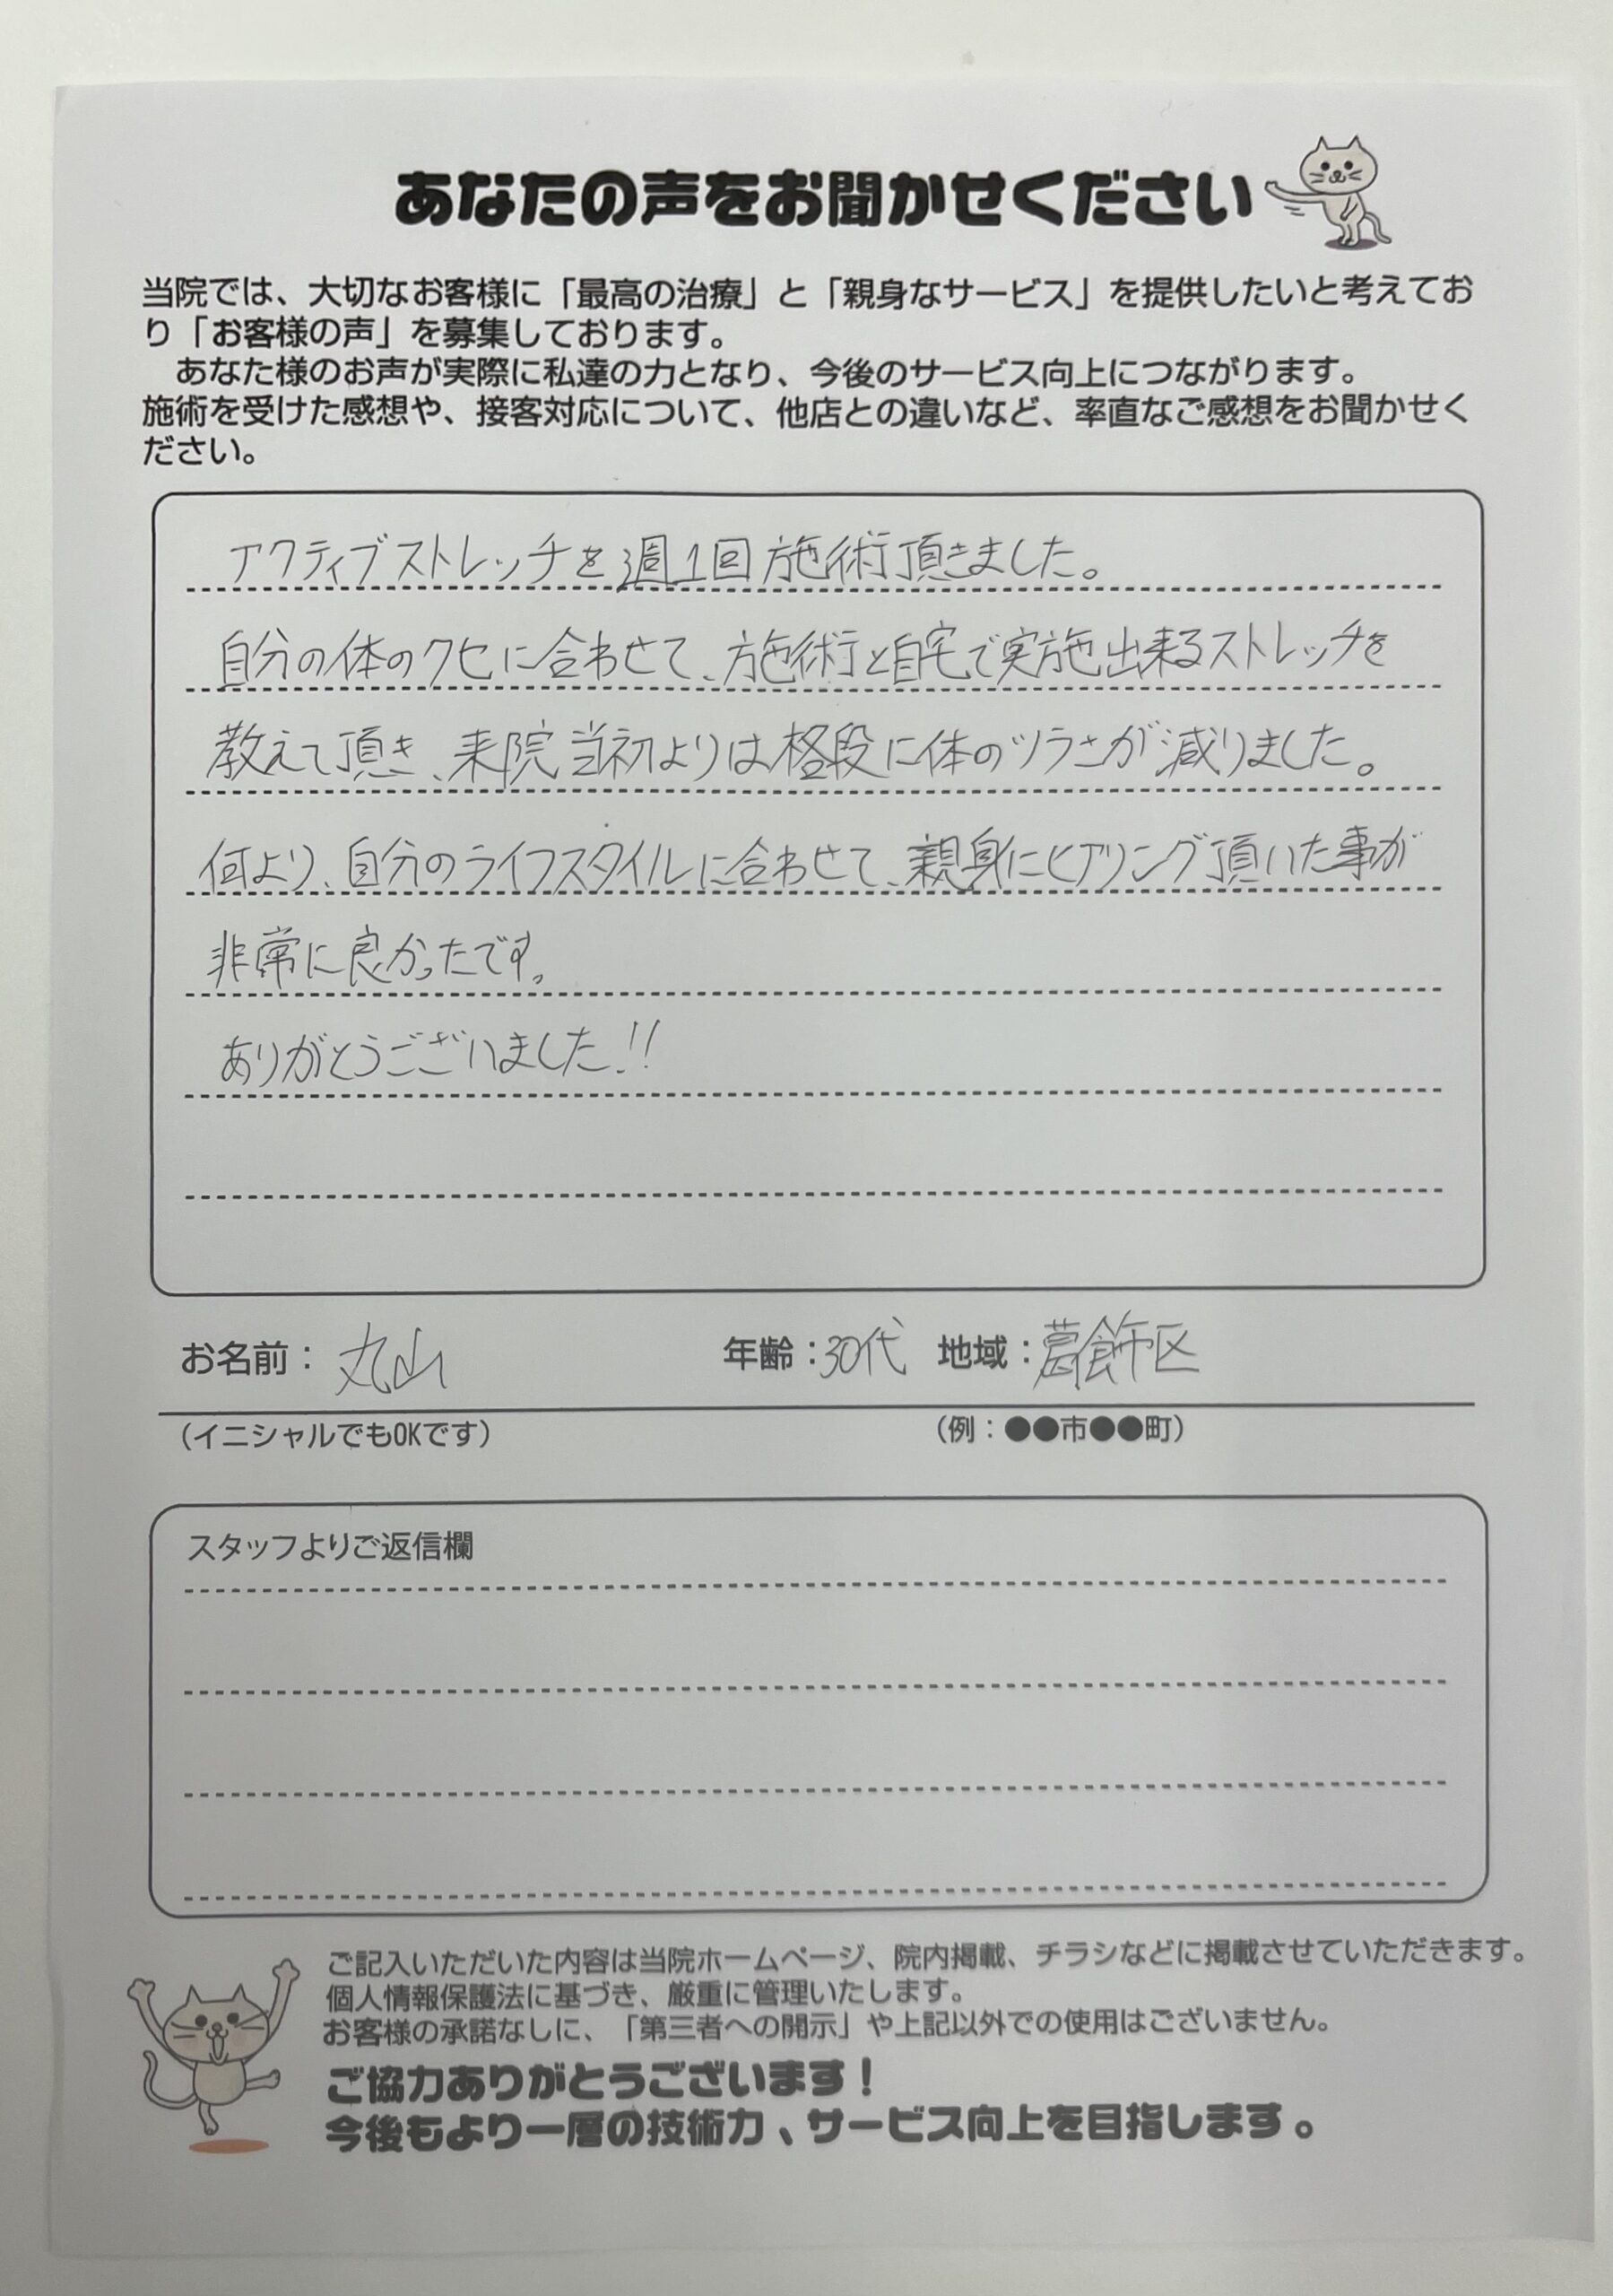 あなたの声をお聞かせください
当院では、大切なお客様に「最高の治療」と「親身なサービス」を提供したいと考えてお
り「お客様の声」を募集しております。
あなた様のお声が実際に私達の力となり、今後のサービス向上につながります。
施術を受けた感想や、接客対応について、他店との違いなど、率直なご感想をお聞かせく
ださい。
アクティブストレッチを週1回施術頂きました。
自分の体のクセに合わせて、施術と自宅で実施出来るストレッチを
教えて頂き、来院当初よりは格段に体のツラさが減りました。
何より、自分のライフスタイルに合わせて、親身にヒアリング頂いた事が
非常に良かったです。
ありがとうございました!!
お名前：丸山 年齢：30代 地域：葛飾区
（イニシャルでもOKです） （例：●●市●●町）
スタッフよりご返信欄
ご記入いただいた内容は当院ホームページ、院内掲載、チラシなどに掲載させていただきます。
個人情報保護法に基づき、厳重に管理いたします。
お客様の承諾なしに、「第三者への開示」や上記以外での使用はございません。
ご協力ありがとうございます！
今後もより一層の技術力、サービス向上を目指します。